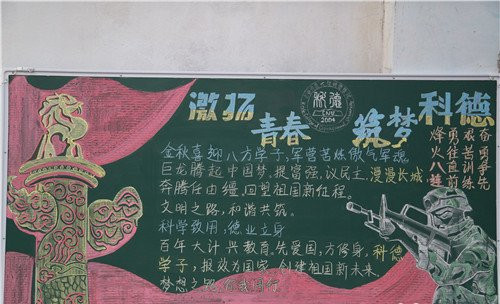 激扬
青春
筑梦
科德
2004
奋勇争先
艰苦训练
勇往直前
烽火八连
金秋喜迎八方学子,军营苦练傲气军魂。
巨龙腾起中国梦,提富强,议民主,漫漫长城
奔腾任由缰,回塑祖国新征程。
文明之路,和谐共筑。
科学致用,德业立身
百年大计,兴教育。先爱国,方修身,科德
学子,报效为国家,创建祖国新未来
梦想之路